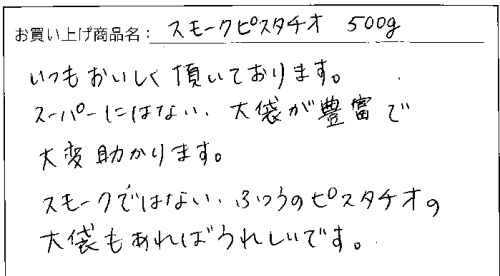 お買い上げ商品名: スモークピスタチオ 500g
いつもおいしく頂いております。
スーパーにはない、大袋が豊富で
大変助かります。
スモークではない、ふつうのピスタチオの
大袋もあればうれしいです。